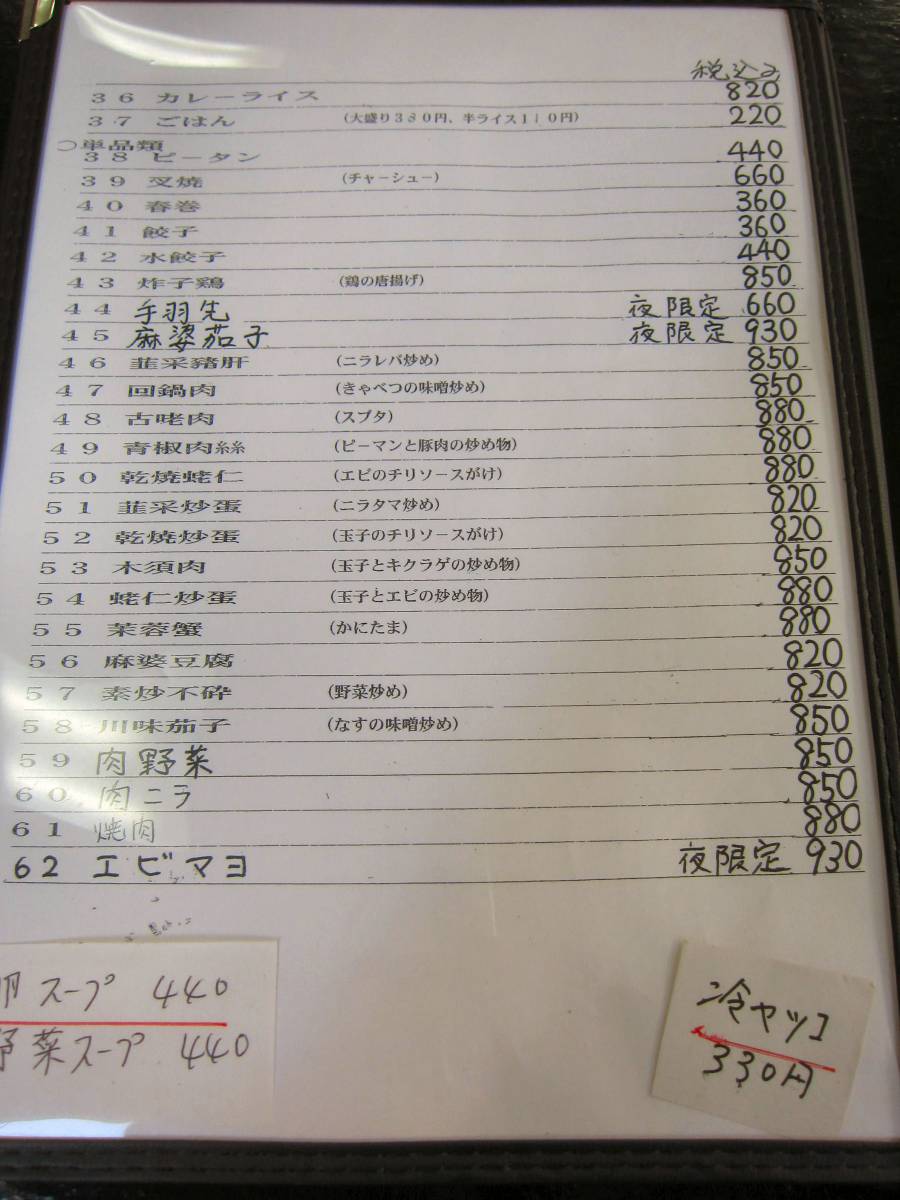 税込み
36 カレーライス 820
37 ごはん (大盛り330円、半ライス110円) 220
○単品類
38 ピータン 440
39 叉焼 (チャーシュー) 660
40 春巻 360
41 餃子 360
42 水餃子 440
43 炸子鶏 (鶏の唐揚げ) 850
44 手羽先 夜限定 660
45 麻婆茄子 夜限定 930
46 韮采豬肝 (ニラレバ炒め) 850
47 回鍋肉 (きゃべつの味噌炒め) 850
48 古咾肉 (スブタ) 880
49 青椒肉絲 (ピーマンと豚肉の炒め物) 880
50 乾焼蛯仁 (エビのチリソースがけ) 880
51 韮采炒蛋 (ニラタマ炒め) 820
52 乾焼炒蛋 (玉子のチリソースがけ) 820
53 木須肉 (玉子とキクラゲの炒め物) 850
54 蛯仁炒蛋 (玉子とエビの炒め物) 880
55 芙蓉蟹 (かにたま) 880
56 麻婆豆腐 820
57 素炒不砕 (野菜炒め) 820
58 川味茄子 (なすの味噌炒め) 850
59 肉野菜 850
60 肉ニラ 850
61 焼肉 880
62 エビマヨ 夜限定 930
スープ 440
野菜スープ 440
冷ヤッコ
330円